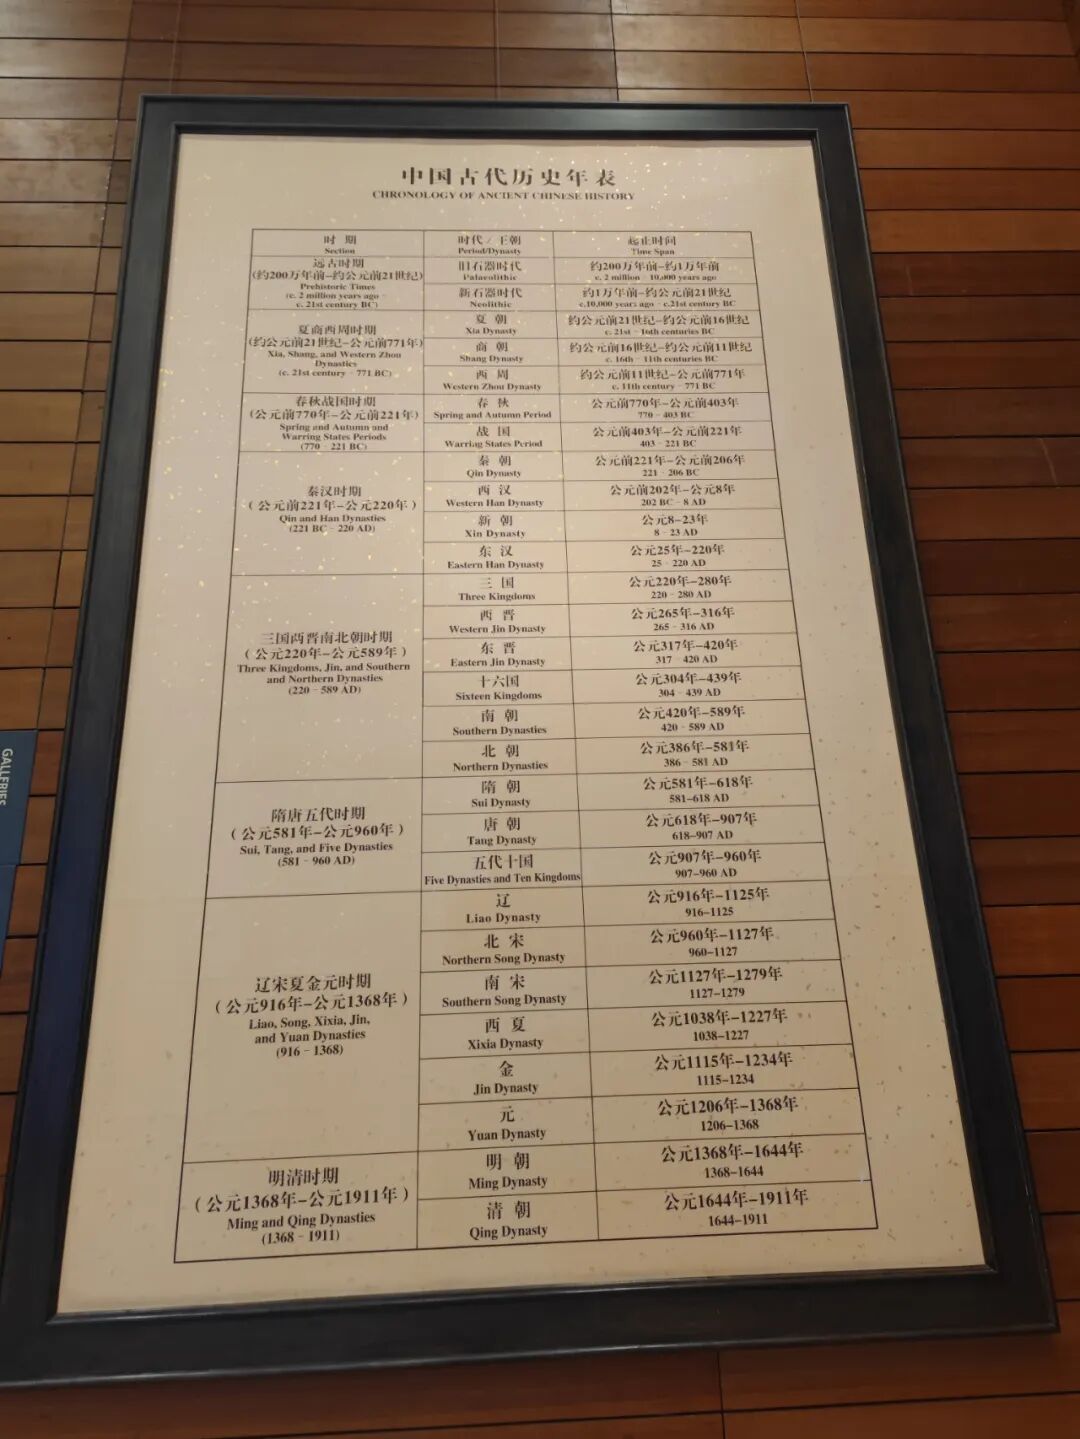 中国古代历史年表
CHRONOLOGY OF ANCIENT CHINESE HISTORY
时 期
Section
时代／王朝
Period/Dynasty
起止时间
Time Span
远古时期
(约200万年前–约公元前21世纪)
Prehistoric Times
(c. 2 million years ago -
c. 21st century BC)
旧石器时代
Palaeolithic
约200万年前–约1万年前
c. 2 million - 10,000 years ago
新石器时代
Neolithic
约1万年前–约公元前21世纪
c.10,000 years ago - c.21st century BC
夏商西周时期
(约公元前21世纪–公元前771年)
Xia, Shang, and Western Zhou
Dynasties
(c. 21st century - 771 BC)
夏 朝
Xia Dynasty
约公元前21世纪–约公元前16世纪
c. 21st - 16th centuries BC
商 朝
Shang Dynasty
约公元前16世纪–约公元前11世纪
c. 16th - 11th centuries BC
西 周
Western Zhou Dynasty
约公元前11世纪–公元前771年
c. 11th century - 771 BC
春秋战国时期
(公元前770年–公元前221年)
Spring and Autumn and
Warring States Periods
(770 - 221 BC)
春 秋
Spring and Autumn Period
公元前770年–公元前403年
770 - 403 BC
战 国
Warring States Period
公元前403年–公元前221年
403 - 221 BC
秦汉时期
(公元前221年–公元220年)
Qin and Han Dynasties
(221 BC - 220 AD)
秦 朝
Qin Dynasty
公元前221年–公元前206年
221 - 206 BC
西 汉
Western Han Dynasty
公元前202年–公元8年
202 BC - 8 AD
新 朝
Xin Dynasty
公元8–23年
8 - 23 AD
东 汉
Eastern Han Dynasty
公元25年–220年
25 - 220 AD
三国两晋南北朝时期
(公元220年–公元589年)
Three Kingdoms, Jin, and Southern
and Northern Dynasties
(220 - 589 AD)
三 国
Three Kingdoms
公元220年–280年
220 - 280 AD
西 晋
Western Jin Dynasty
公元265年–316年
265 - 316 AD
东 晋
Eastern Jin Dynasty
公元317年–420年
317 - 420 AD
十六国
Sixteen Kingdoms
公元304年–439年
304 - 439 AD
南 朝
Southern Dynasties
公元420年–589年
420 - 589 AD
北 朝
Northern Dynasties
公元386年–581年
386 - 581 AD
隋唐五代时期
(公元581年–公元960年)
Sui, Tang, and Five Dynasties
(581 - 960 AD)
隋 朝
Sui Dynasty
公元581年–618年
581–618 AD
唐 朝
Tang Dynasty
公元618年–907年
618–907 AD
五代十国
Five Dynasties and Ten Kingdoms
公元907年–960年
907–960 AD
辽宋夏金元时期
(公元916年–公元1368年)
Liao, Song, Xixia, Jin,
and Yuan Dynasties
(916 - 1368)
辽
Liao Dynasty
公元916年–1125年
916–1125
北 宋
Northern Song Dynasty
公元960年–1127年
960–1127
南 宋
Southern Song Dynasty
公元1127年–1279年
1127–1279
西 夏
Xixia Dynasty
公元1038年–1227年
1038–1227
金
Jin Dynasty
公元1115年–1234年
1115–1234
元
Yuan Dynasty
公元1206年–1368年
1206–1368
明清时期
(公元1368年–公元1911年)
Ming and Qing Dynasties
(1368 - 1911)
明 朝
Ming Dynasty
公元1368年–1644年
1368–1644
清 朝
Qing Dynasty
公元1644年–1911年
1644–1911
GALLERIES